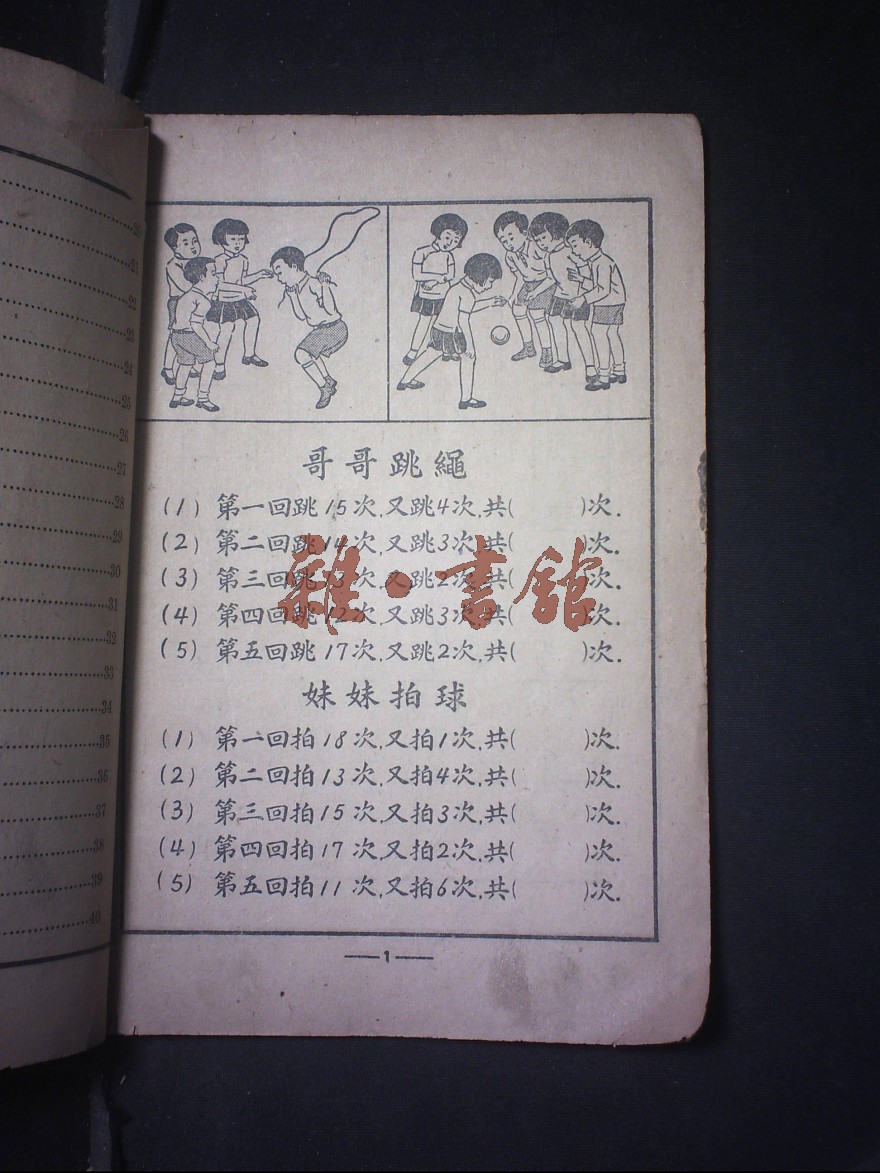 20
21
22
23
24
25
26
27
28
29
30
31
32
33
34
35
36
37
38
39
40
哥哥跳繩
(1) 第一回跳15次,又跳4次,共(   )次.
(2) 第二回跳14次,又跳3次,共(   )次.
(3) 第三回跳13次,又跳2次,共(   )次.
(4) 第四回跳12次,又跳3次,共(   )次.
(5) 第五回跳17次,又跳2次,共(   )次.
雜·書館
妹妹拍球
(1) 第一回拍18次,又拍1次,共(   )次.
(2) 第二回拍13次,又拍4次,共(   )次.
(3) 第三回拍15次,又拍3次,共(   )次.
(4) 第四回拍17次,又拍2次,共(   )次.
(5) 第五回拍11次,又拍6次,共(   )次.
—1—